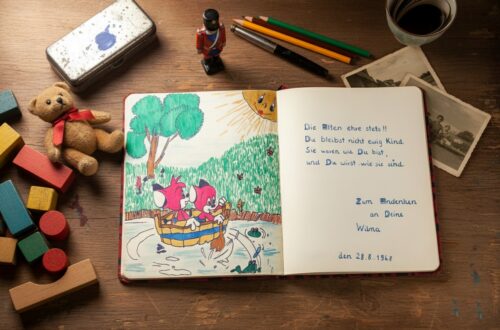 Die Alten ehre stets!!
Du bleibst nicht ewig Kind.
Sie waren wie Du bist,
und Du wirst wie sie sind.
Zum Andenken
an Deine
Wilma
den 28.8.1968